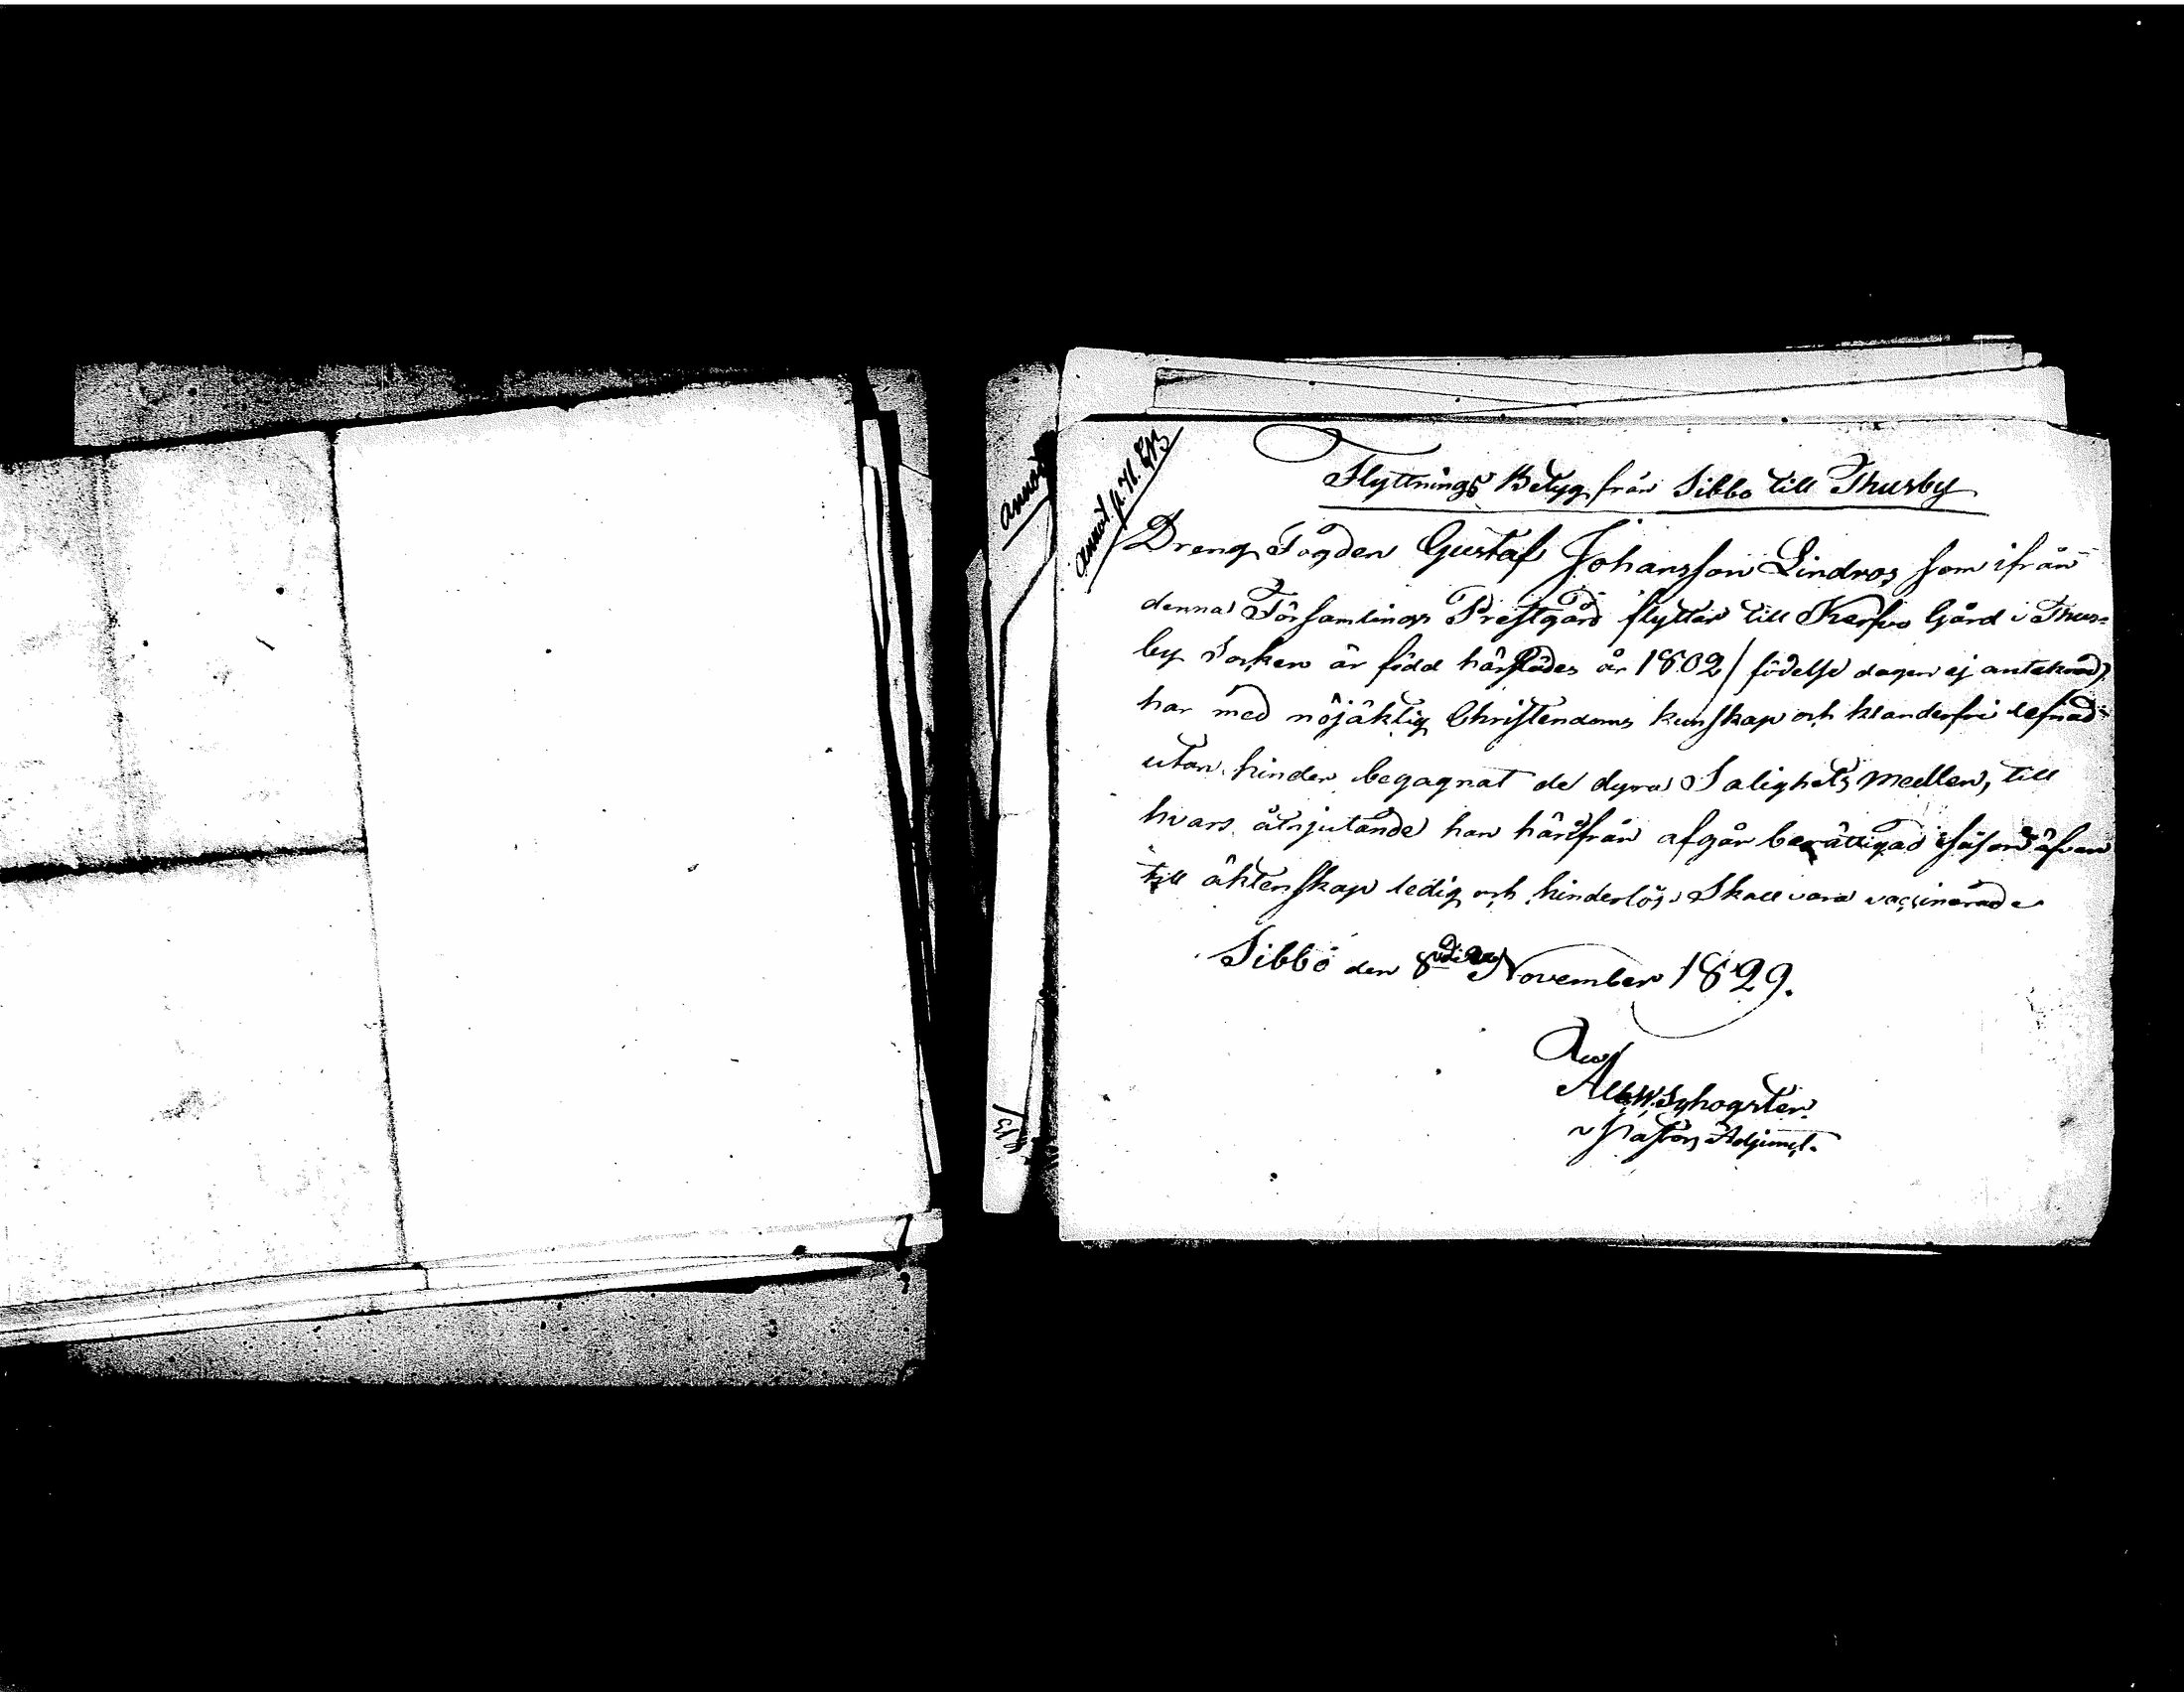 annot
annot. p.
Flyttnings Betyg från Sibbo till Thusby
Dreng Fogden Gustaf Johansson Lindros som ifrån
denna Församlings Prestgård flyttar till Kerfvo Gård i Thus=
by Socken är född härstädes år 1802 / födelse dagen ej anteknad)
har med nöjaktig Christendoms kunskap och klanderfri lefnad
utan hinder begagnat de dyra Salighets medlen, till
hvars åtnjutande han härifrån afgår berättigad såsom äfven
till äktenskap ledig och hinderlös. Skall vara vaccinerad
Sibbo den 8 November 1829.
Pastors Adjunct.